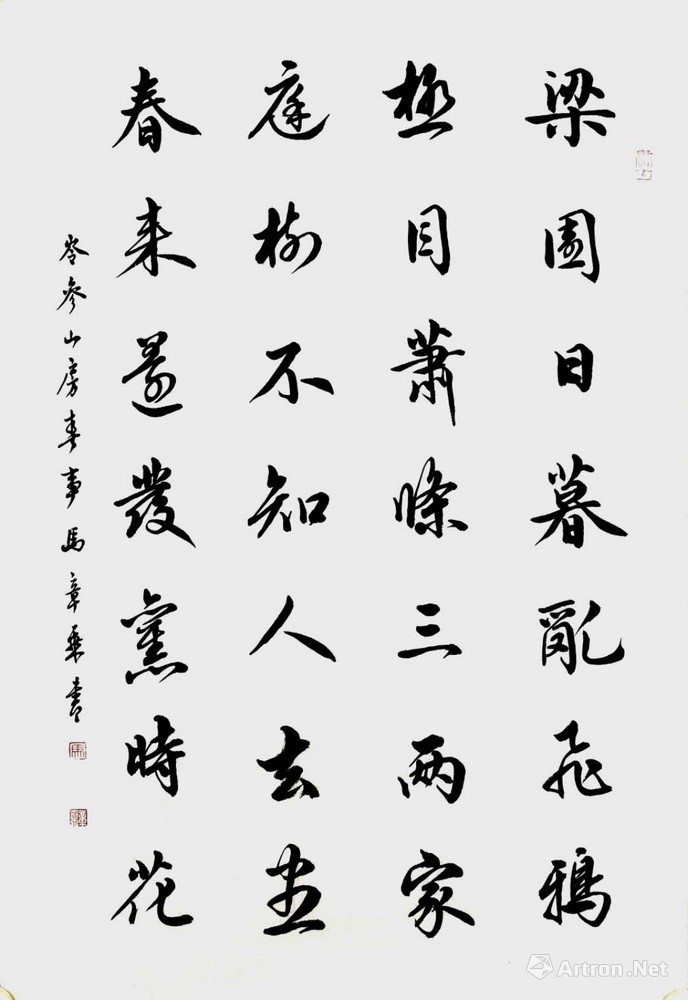 梁園日暮亂飛鴉
極目蕭條三兩家
庭樹不知人去盡
春来還發舊時花
岑參山房春事馬章乘書
Artron.Net